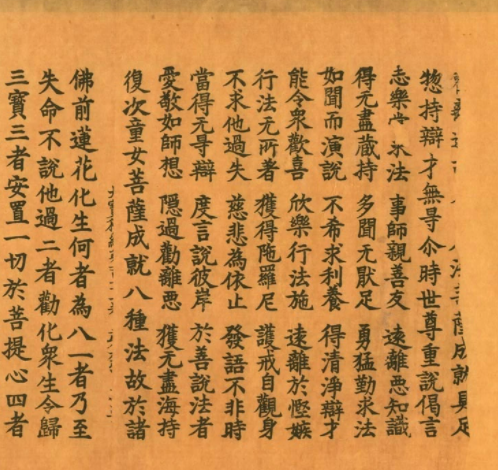 法菩薩成就具足
惣持辯才無㝵尒時世尊重說偈言
志樂求法 事師親善友 遠離惡知識
得无盡蔵持 多聞无猒足 勇猛勤求法
如聞而演說 不希求利養 得清淨辯才
能令衆歡喜 欣樂行法施 遠離於慳嫉
行法无所著 獲得陁羅尼 護戒自觀身
不求他過失 慈悲為依止 發語不非時
當得无㝵辯 度言說彼岸 於善說法者
愛敬如師想 隱過勸離惡 獲无盡海持
復次童女菩薩成就八種法故於諸
佛前蓮花化生何者為八一者乃至
失命不說他過二者勸化衆生令歸
三寶三者安置一切於菩提心四者